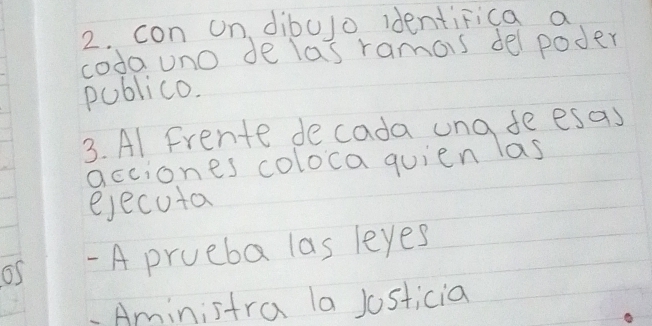 2. con un dibujo identifica a
coda uno de las ramas del poder
publico.
3. Al Frente de cada una de esas
acciones coloca quien las
ejecuta
- A prueba las leyes
os
- Aministra la justicia